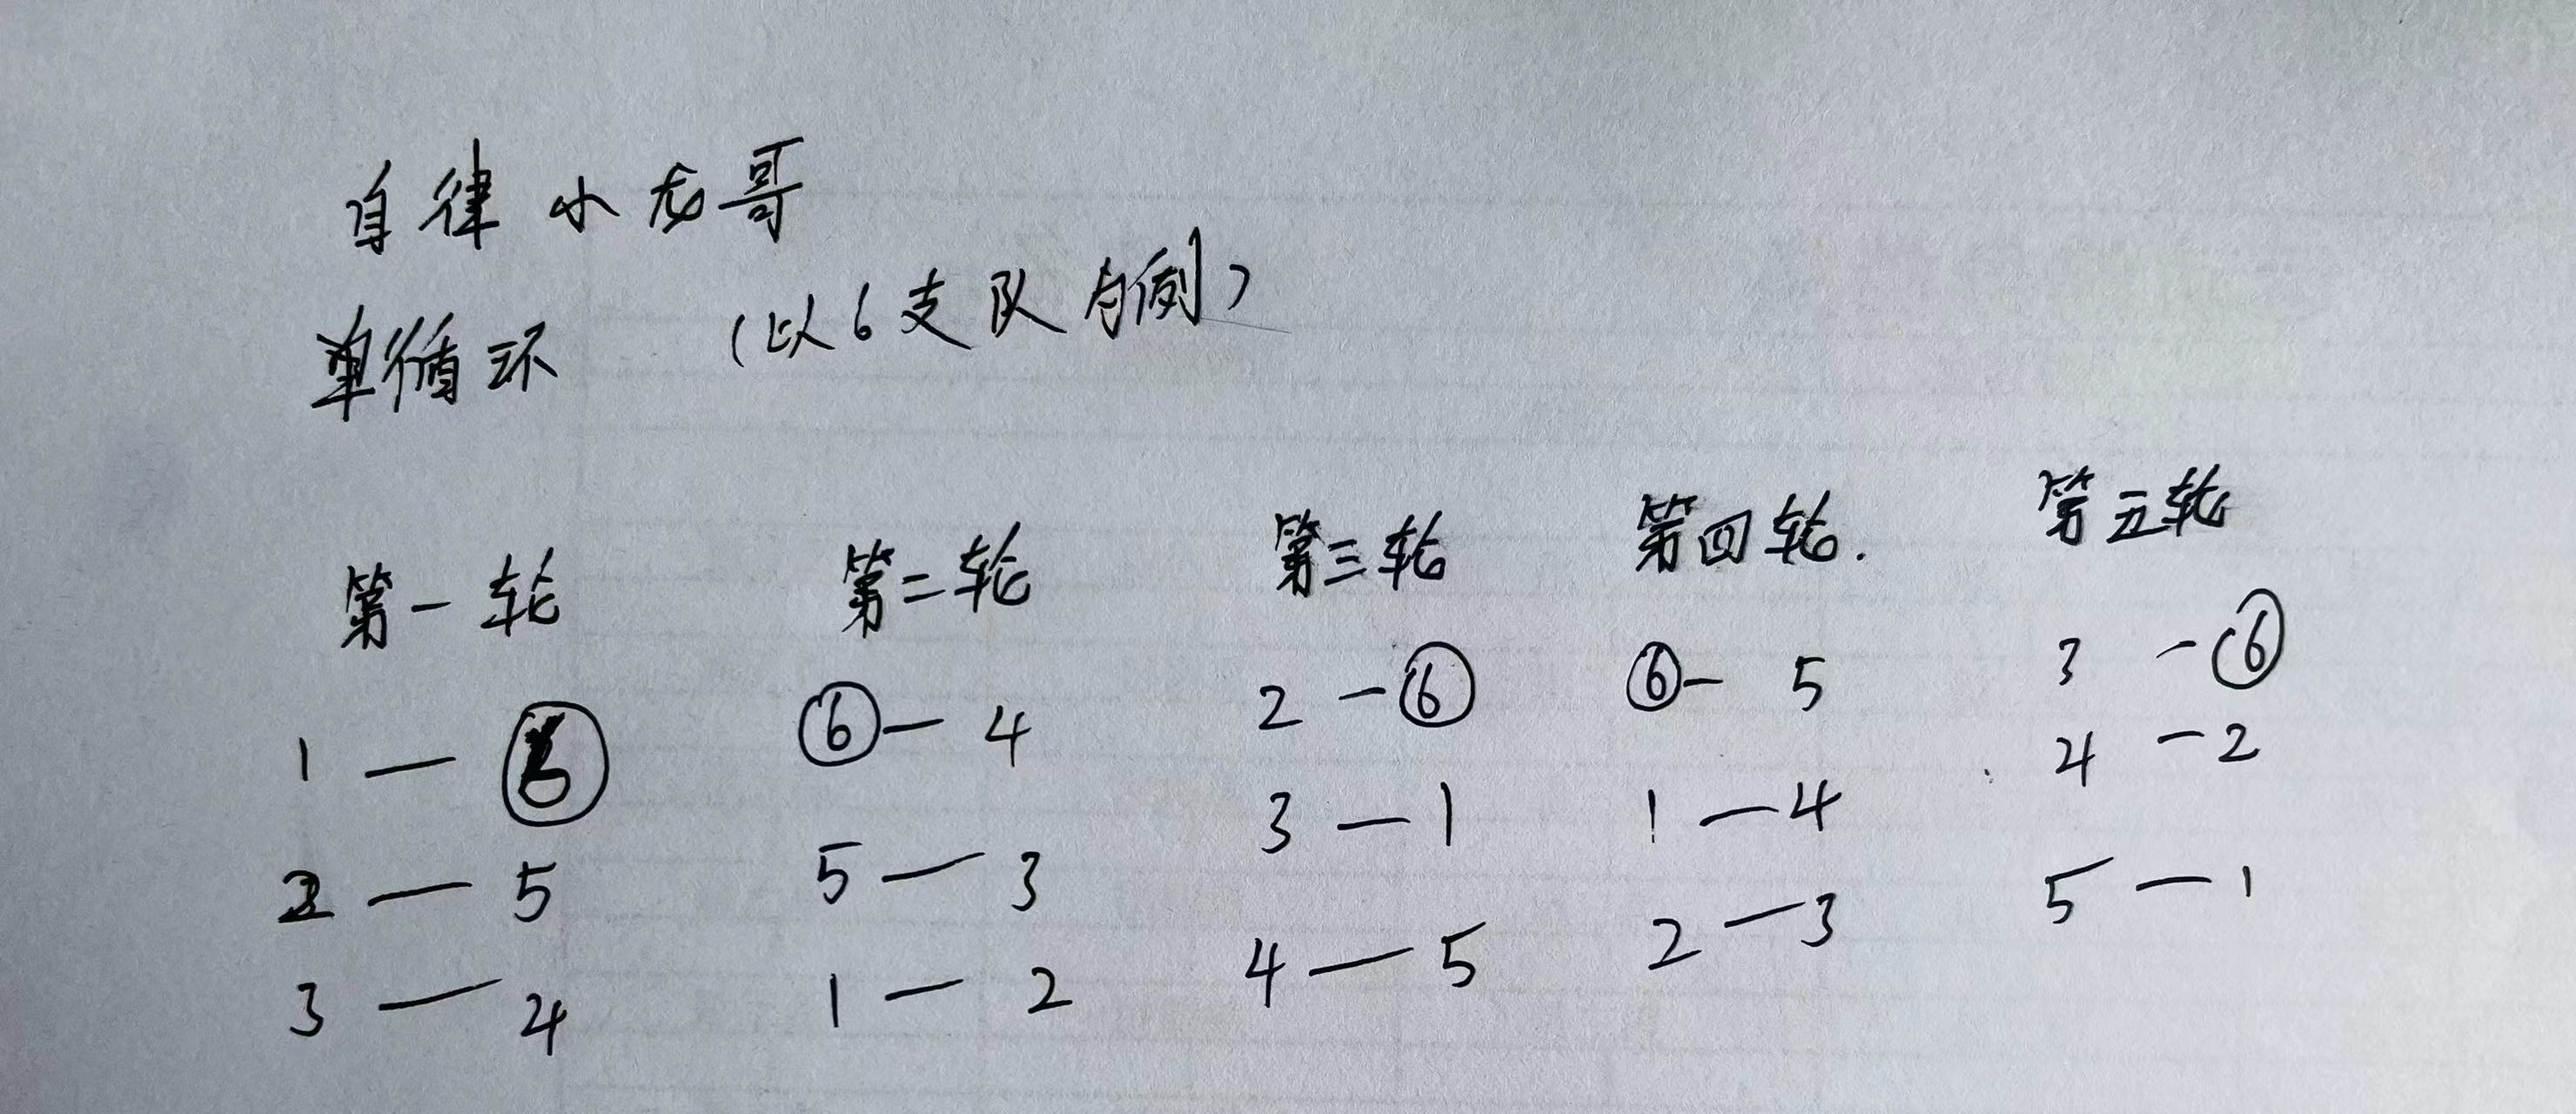 自律小龙哥
单循环 (以6支队为例)
第一轮 第二轮 第三轮 第四轮. 第五轮
1 — ⑥ ⑥ — 4 2 — ⑥ ⑥ — 5 3 — ⑥
2 — 5 5 — 3 3 — 1 1 — 4 4 — 2
3 — 4 1 — 2 4 — 5 2 — 3 5 — 1